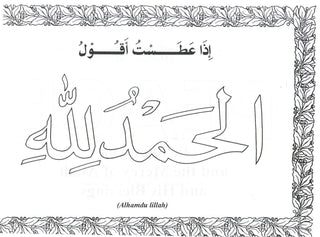 إِذَا عَطَسْتُ أَقُولُ
الْحَمْدُ لِلَّهِ
(Alhamdu lillah)